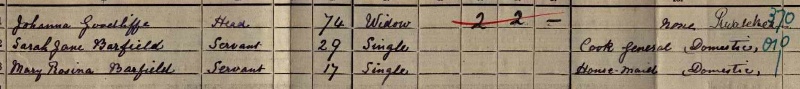 Johanna Goodliffe Head 74 Widow 2 2 — none 370
2 Sarah Jane Barfield Servant 29 Single Cook General Domestic,
3 Mary Rosina Barfield Servant 17 Single House-maid Domestic,